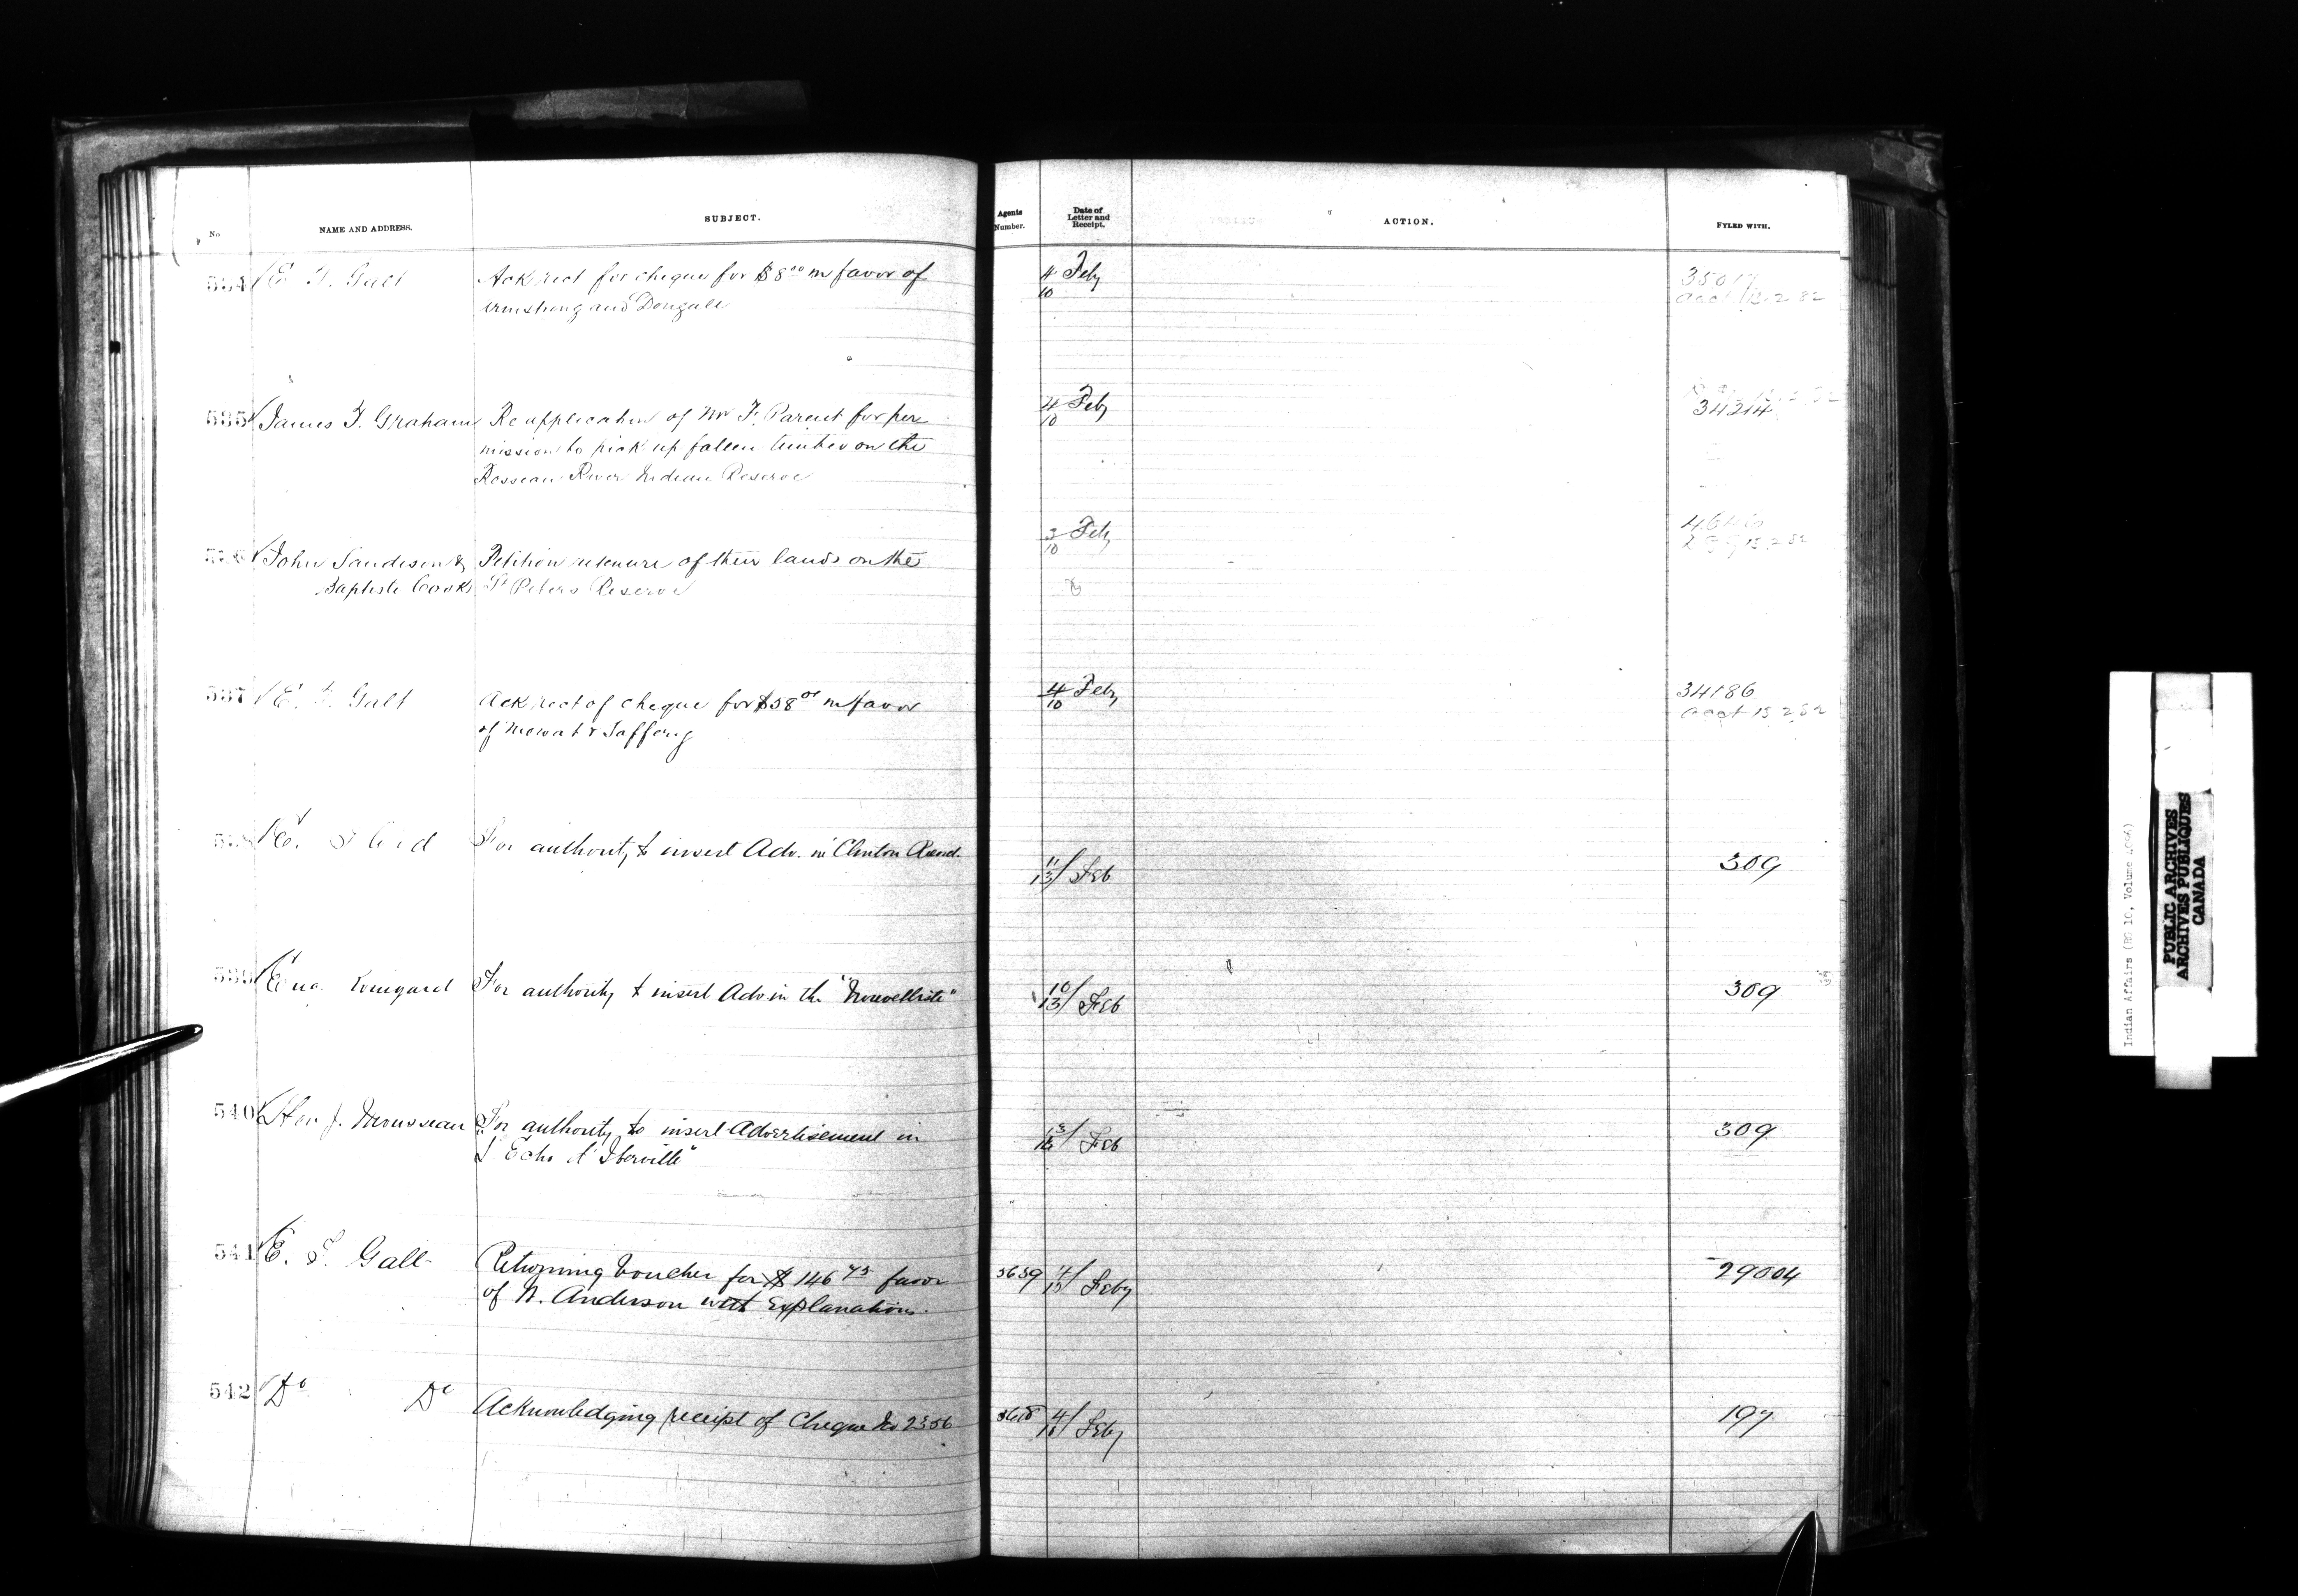 No.
NAME AND ADDRESS.
SUBJECT.
Agents Number.
Date of Letter and Receipt.
ACTION.
FYLED WITH.
534 E. T. Galt
Ack rect for cheque for $8 00 in favor of
Armstrong and Dougall
4 Feby
10
3501
acct 13.2.82
535 James F. Graham
Re application of Mr F. Parent for per
mission to pick up fallen timber on the
Rosseau River Indian Reserve
4 Feby
10
34214
John Sandison &
Baptiste Cook
Petition re tenure of their lands on the
St Peters Reserve
3 Feby
10
13.2.82
537 E. T. Galt
Ack rect of cheque for $58 in favor
of Mowat &
4 Feby
10
34186
acct 13 2 82
538
For authority to insert Adv. in Clinton Record.
11/13 Feb
309
539
For authority to insert Adv in the "Nouvelliste"
10/13 Feb
309
540 Hon J. Mousseau
For authority to insert Advertisement in
"L'Echo d'Iberville"
13/ Feb
309
541 E. T. Galt
Returning Voucher for $146 75 favor
of N. Anderson with Explanations.
3639
4/ Feby
29004
542 Do Do
Acknowledging receipt of Cheque No 2356
4/ Feby
197
Indian Affairs (RG 10, Volume
PUBLIC ARCHIVES
ARCHIVES PUBLIQUES
CANADA